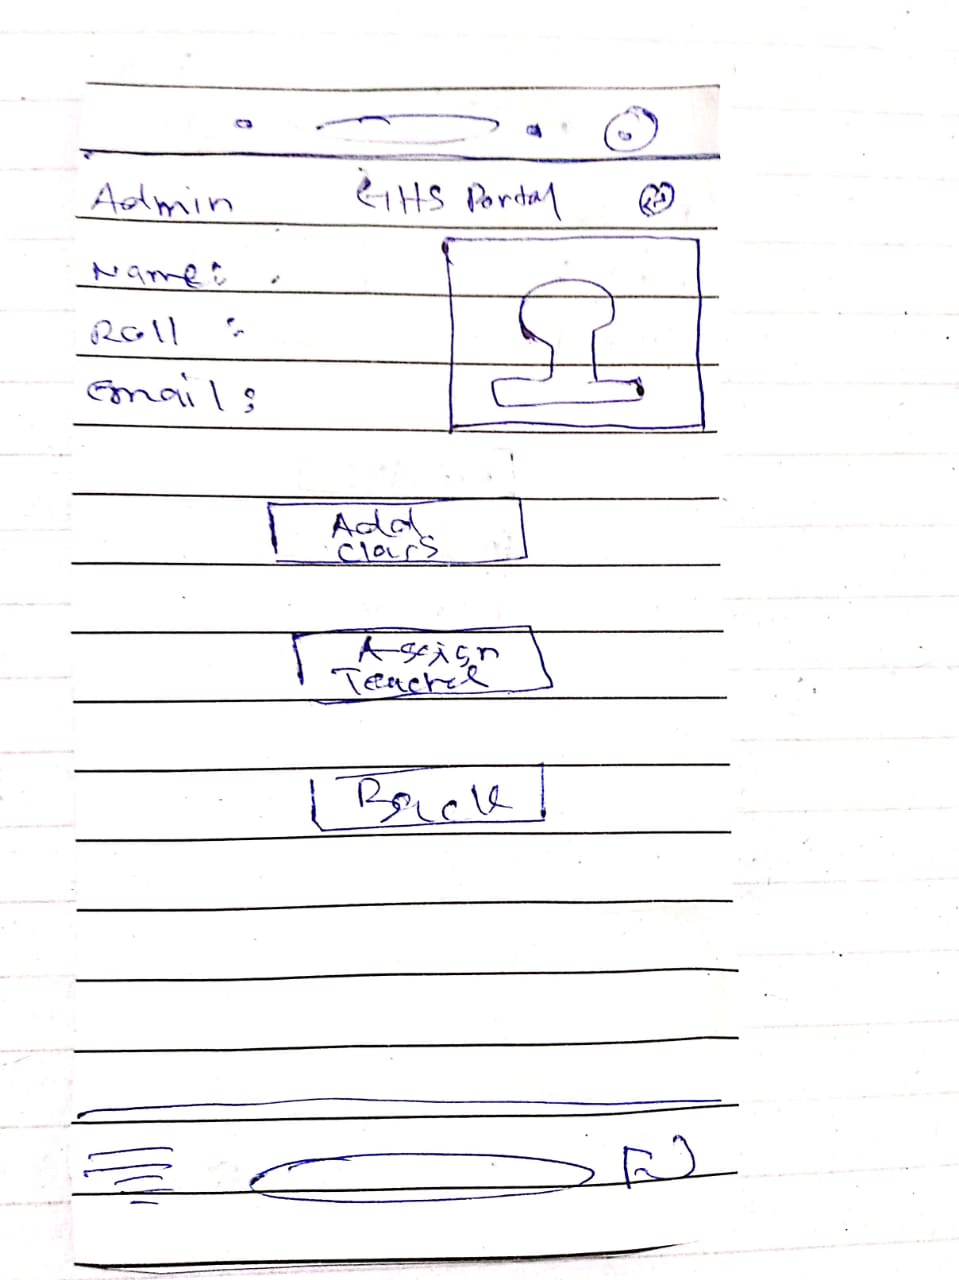 Admin GHS Portal
Name:
Roll :
Email:
Add
Class
Assign
Teacher
Back